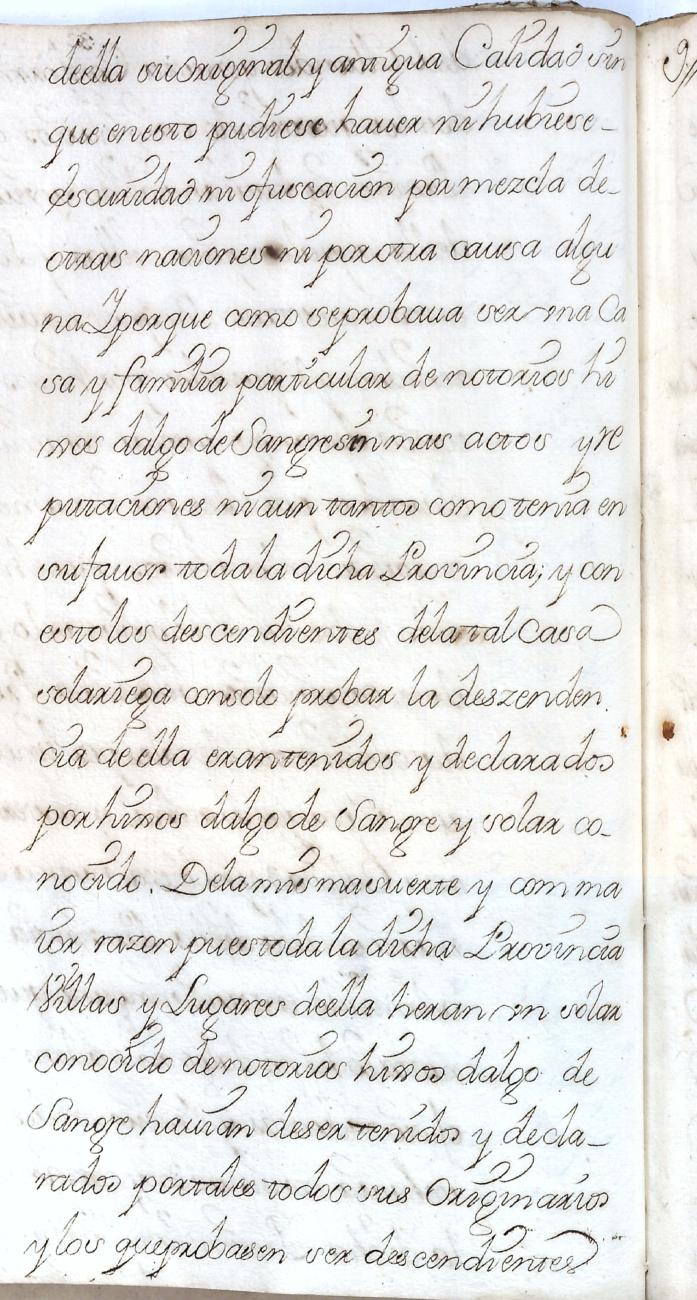 deella su original y antigua Calidad sin
que enesto pudiese hauer ni hubiese-
escuridad ni ofuscacion por mezcla de-
otras naciones ni por otra causa algu
na Y porque como se probaua ser vna Ca
sa y familia particular de notorios hi
nos dalgo de Sangre sin mas actos y re
putaciones ni aun tantos como tenia en
su fauor toda la dicha Provincia; y con
esto los descendientes dela tal Casa
solariega con solo probar la deszenden.
cia de ella eran tenidos y declarados
por hinos dalgo de Sangre y solar co-
nocido. Dela misma suerte y com ma
ior razon pues toda la dicha Provincia
Villas y Lugares deella heran vn solar
conocido de notorias hinos dalgo de
Sangre hauian de ser tenidos y decla-
rados por tales todos sus Originarios
y los que probasen ser descendientes